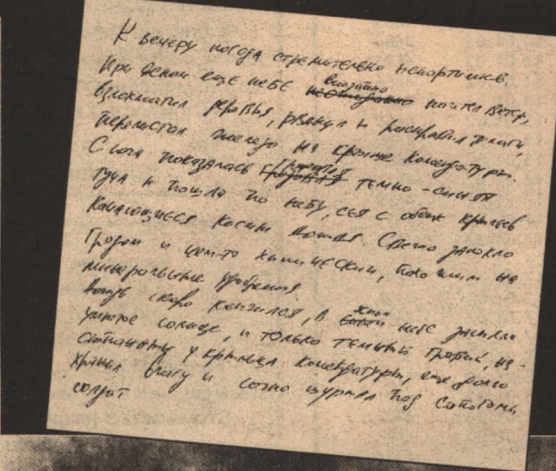 К вечеру погода стремительно испортилась.
При ясном еще небе внезапно налетел ветер,
взлохматил деревья, рванул и расправил флаги,
перелистал железо на крыше комендатуры.
С юга показалась громадная темно-синяя
туча и пошла по небу, сея с обоих крыльев
качающиеся космы дождя. Свежо запахло
грозой и чем-то химическим, похожим на
минеральные удобрения.
Дождь скоро кончился, в небе засияло
умытое солнце, и только темный гравий, на-
у крыльца комендатуры, еще долго
хранил влагу и сочно шуршал под сапогами
солдат